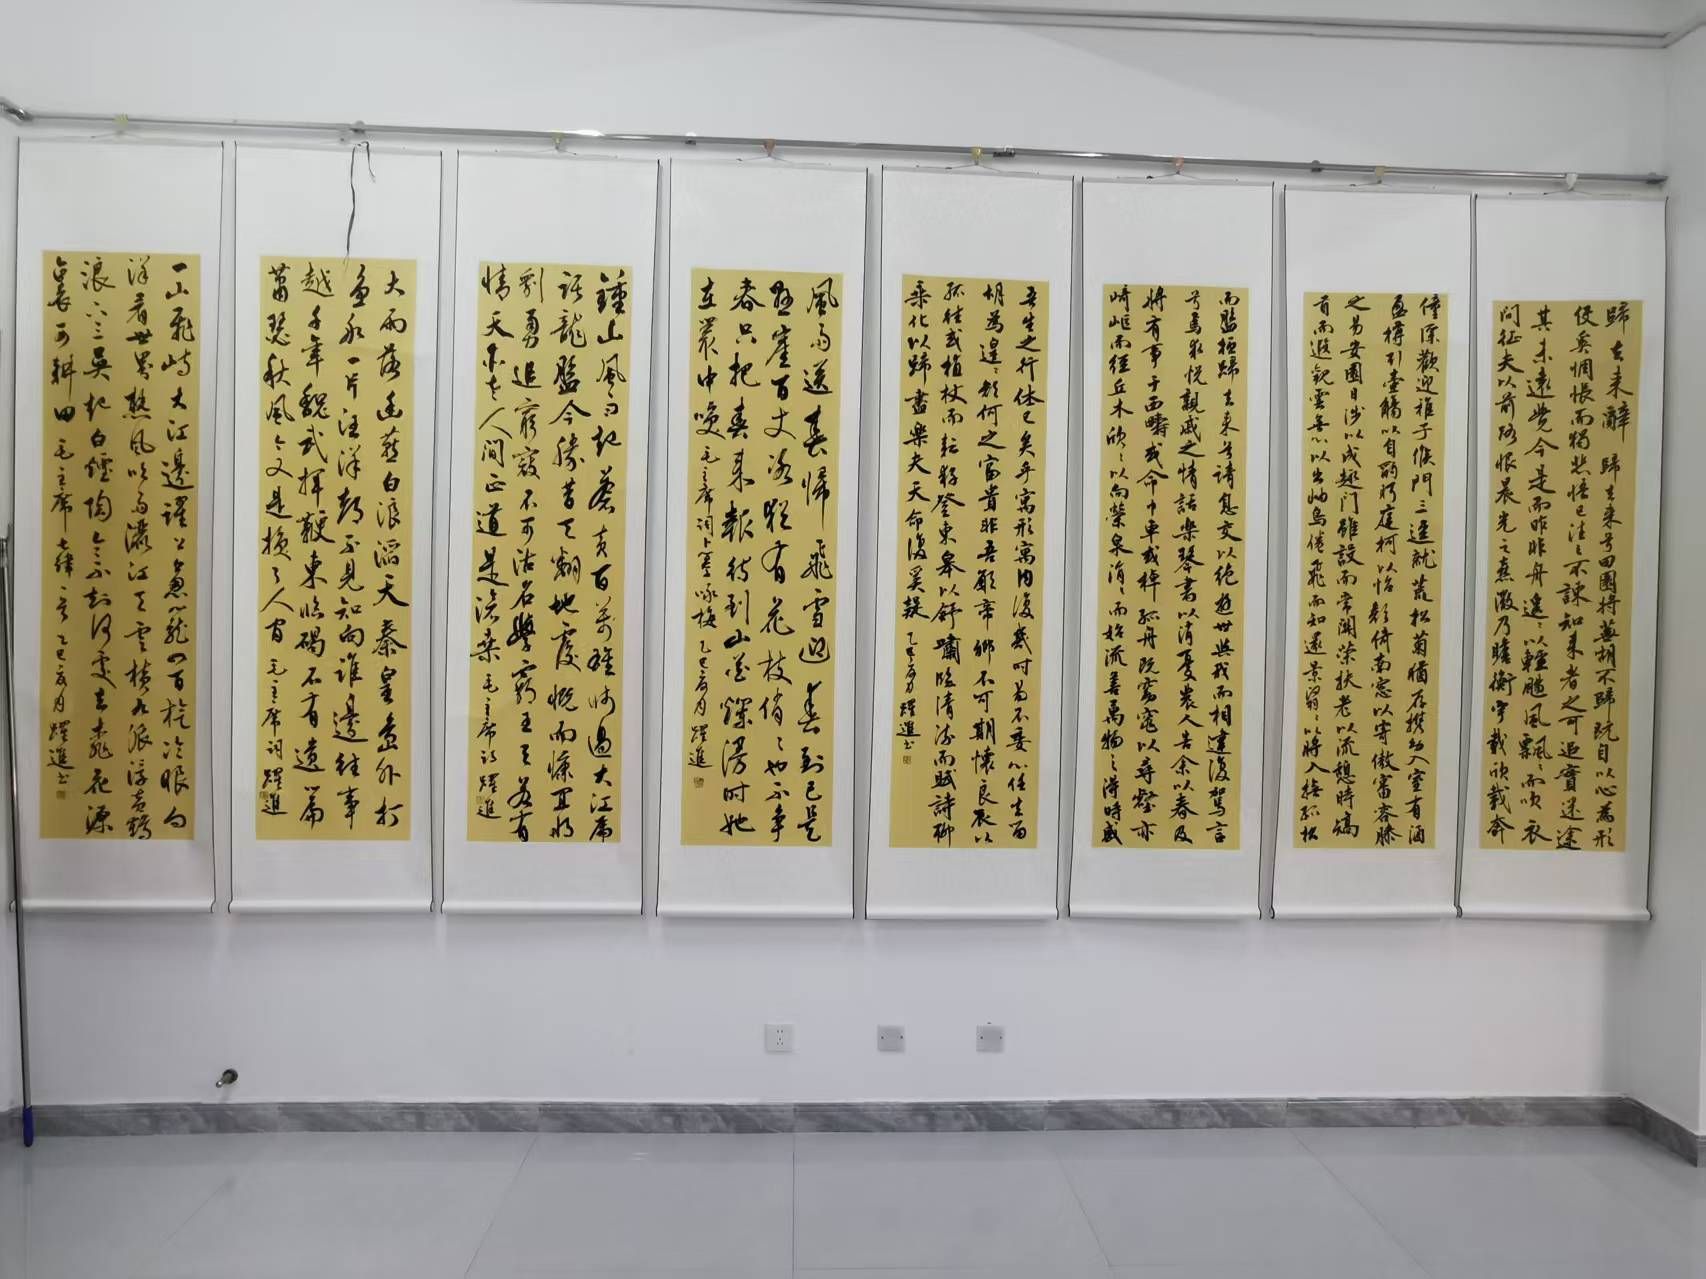 歸去来辭 歸去来兮田園将蕪胡不歸既自以心為形
役奚惆悵而獨悲悟已往之不諫知来者之可追實迷途
其未遠覺今是而昨非舟遙々以輕颺風飄々而吹衣
问征夫以前路恨晨光之熹微乃瞻衡宇載欣載奔
僮僕歡迎稚子候門三逕就荒松菊猶存攜幼入室有酒
盈樽引壺觴以自酌眄庭柯以怡顏倚南窓以寄傲審容膝
之易安園日涉以成趣门雖設而常関策扶老以流憩時矯
首而遐觀雲無心以出岫鳥倦飛而知還景翳々以將入撫孤松
而盤桓歸去来兮请息交以绝遊世與我而相違復駕言
兮焉求悦親戚之情話樂琴書以消憂農人告余以春及
將有事于西疇或命巾車或棹孤舟既窈窕以尋壑亦
崎岖而经丘木欣々以向榮泉涓々而始流善萬物之得時感
吾生之行休已矣乎寓形寓内復幾时曷不委心任去留
胡為遑々欲何之富貴非吾願帝鄉不可期懷良辰以
孤往或植杖而耘耔登東皋以舒嘯臨清流而賦詩聊
乘化以歸盡樂夫天命復奚疑 乙巳夏月 躍進书
风雨送春歸飛雪迎春到已是
懸崖百丈冰猶有花枝俏々也不争
春只把春来報待到山花爛漫时她
在叢中笑 毛主席词卜算子咏梅 乙巳夏月 躍進
鍾山风雨起苍黄百萬雄师過大江虎
踞龍盤今勝昔天翻地覆慨而慷宜将
剩勇追窮寇不可沽名學霸王天若有
情天亦老人间正道是滄桑 毛主席诗 躍進
大雨落幽燕白浪滔天秦皇島外打
鱼船一片汪洋都不見知向谁邊往事
越千年魏武揮鞭東临碣石有遺篇
蕭瑟秋風今又是换了人间 毛主席词 躍進
一山飛峙大江邊躍上葱蘢四百旋冷眼向
洋看世界热风吹雨灑江天雲横九派浮黄鶴
浪下三吴起白煙陶令不知何處去桃花源
裏可耕田 毛主席七律一首 乙巳夏月 躍進书